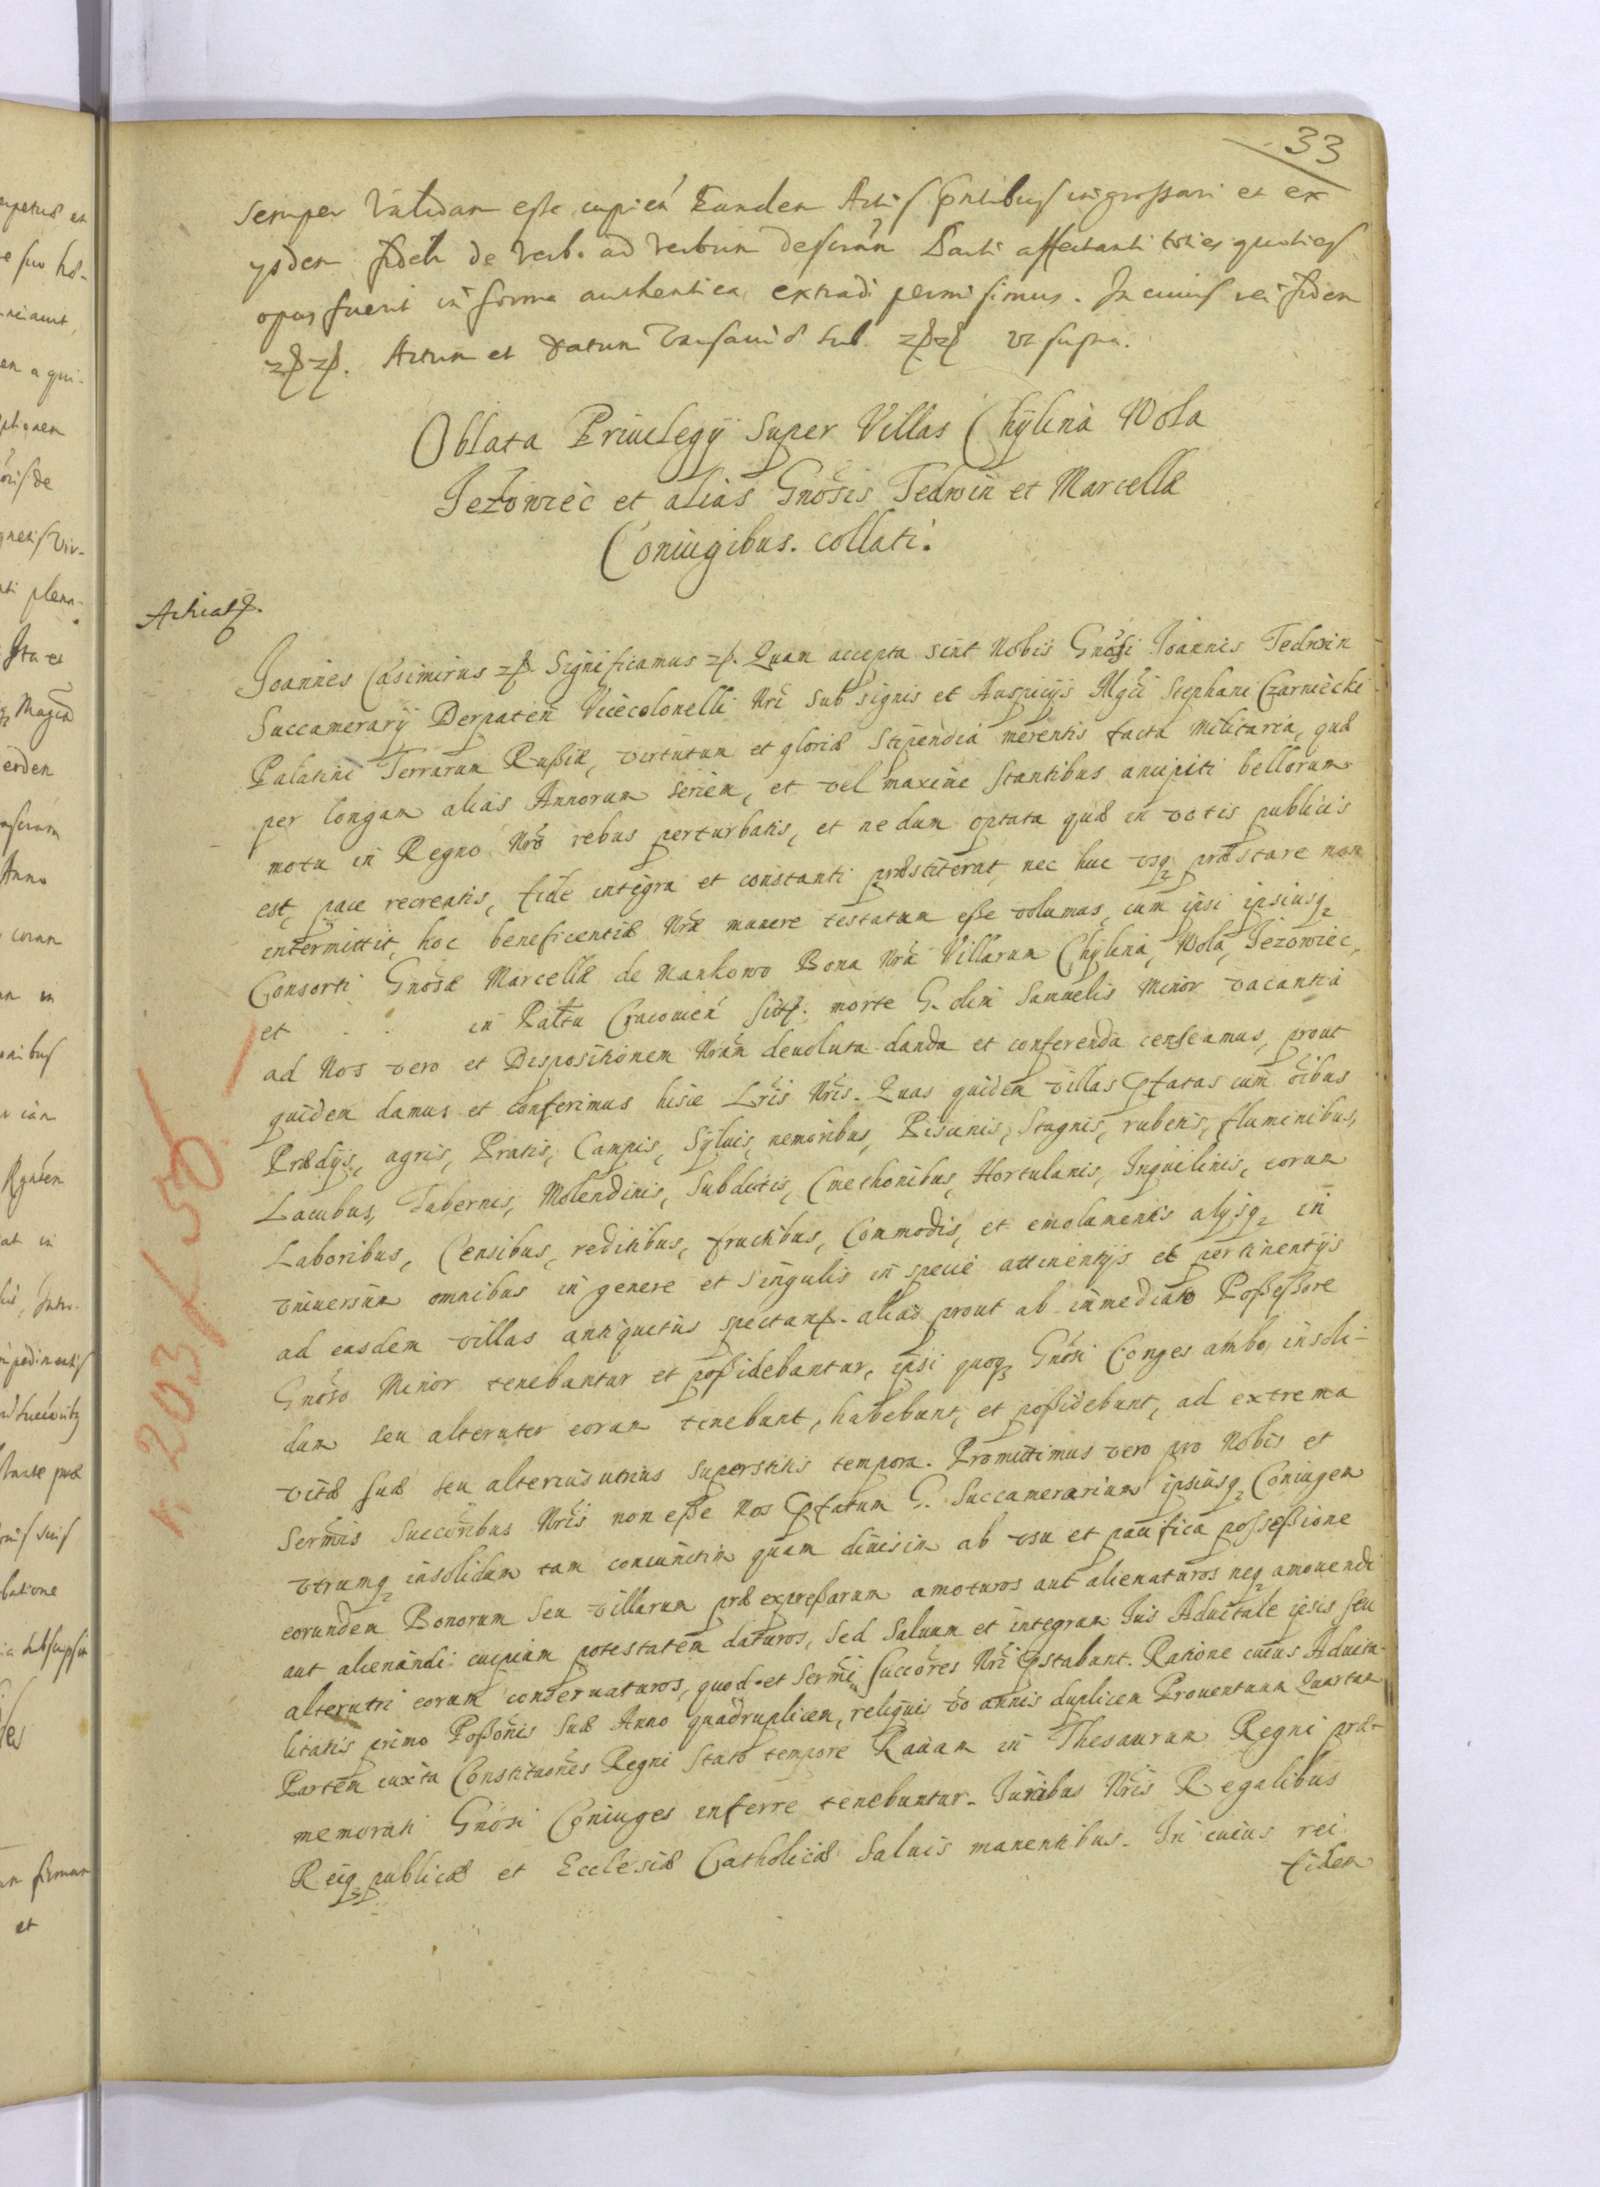 33
semper validam esse cupien Eandem Actis pntibus ingrossari et ex
ysdem fideli de verb. ad verbum descriām Parti affectanti toties quoties
opus fuerit in forma authentica extradi permisimus. In cuius rei fidem
Actum et Datum Varsaviæ sub ut supra.
Oblata Priuilegÿ Super Villas Chÿlina Wola
Jezowiec et alias Gnosis Tedwin et Marcellæ
Coniugibus. collati.
Joannes Casimirus Significamus Quam accepta sint Nobis Gnosi Joannis Tedwin
Succamerarÿ Derpaten Vicecolonelli Nri sub signis et Auspicÿs Mgci Stephani Czarniecki
Palatini Terrarum Russiæ, virtutum et gloriæ Stipendia merentis facta Militaria, quæ
per longam alias Annorum seriem, et vel maxime stantibus ancipiti bellorum
motu in Regno Nro rebus perturbatis, et nedum optata quæ in votis publicis
est, pace recreatis, fide integra et constanti præstiterat, nec huc usq præstare non
intermittit, hoc beneficentiæ Nræ munere testatum esse volumus, cum ipsi ipsiusq
Consorti Gnosæ Marcellæ de Mankowo Bona Nra Villarum Chÿlina, Wola, Jezowiec,
et in Paltu Cracovien morte G. olim Samuelis Minor vacantia
ad Nos vero et Dispositionem Nram devoluta danda et conferenda censeamus, prout
quidem damus et conferimus hisce Lris Nris. Quas quidem villas pfatas cum oibus
Prædÿs, agris, Pratis, Campis, Sÿluis, nemoribus, Piscinis, Stagnis, rubetis, fluminibus,
Lacubus, Tabernis, Molendinis, Subditis, Cmethonibus, Hortulanis, Inquilinis, eorum
Laboribus, Censibus, reditibus, fructibus, Commodis, et emolumentis alÿsq in
vniuersum omnibus in genere et singulis in specie attinentÿs et pertinentÿs
ad easdem villas antiquitus spectan. alias prout ab immediato Possessore
Gnoso Minor tenebantur et possidebantur, ipsi quoq Gnosi Conges ambo insoli-
dum seu alteruter eorum tenebunt, habebunt, et possidebunt, ad extrema
vitæ suæ seu alteriusutrius superstitis tempora. Promittimus vero pro Nobis et
Sermis Succoribus Nris non esse Nos pfatum G. Succamerarium ipsiusq Coniugem
vtrumq insolidum tam coniunctim quam diuisim ab vsu et pacifica possessione
eorundem Bonorum seu villarum præexpressarum amoturos aut alienaturos neq amouendi
aut alienandi cuipiam potestatem daturos, sed saluum et integrum Ius Aduitale ipsis seu
alterutri eorum conseruaturos, quod et Sermi Succores Nri pstabunt. Ratione cuius Aduita-
litatis primo Possonis suæ Anno quadruplicem, reliquis vo annis duplicem Prouentuum Quartam
Partem iuxta Constituones Regni stato tempore Rauam in Thesaurum Regni præ-
memorati Gnosi Coniuges inferre tenebuntur. Iuribus Nris Regalibus
Reiq publicæ et Ecclesiæ Catholicæ saluis manentibus. In cuius rei
fidem